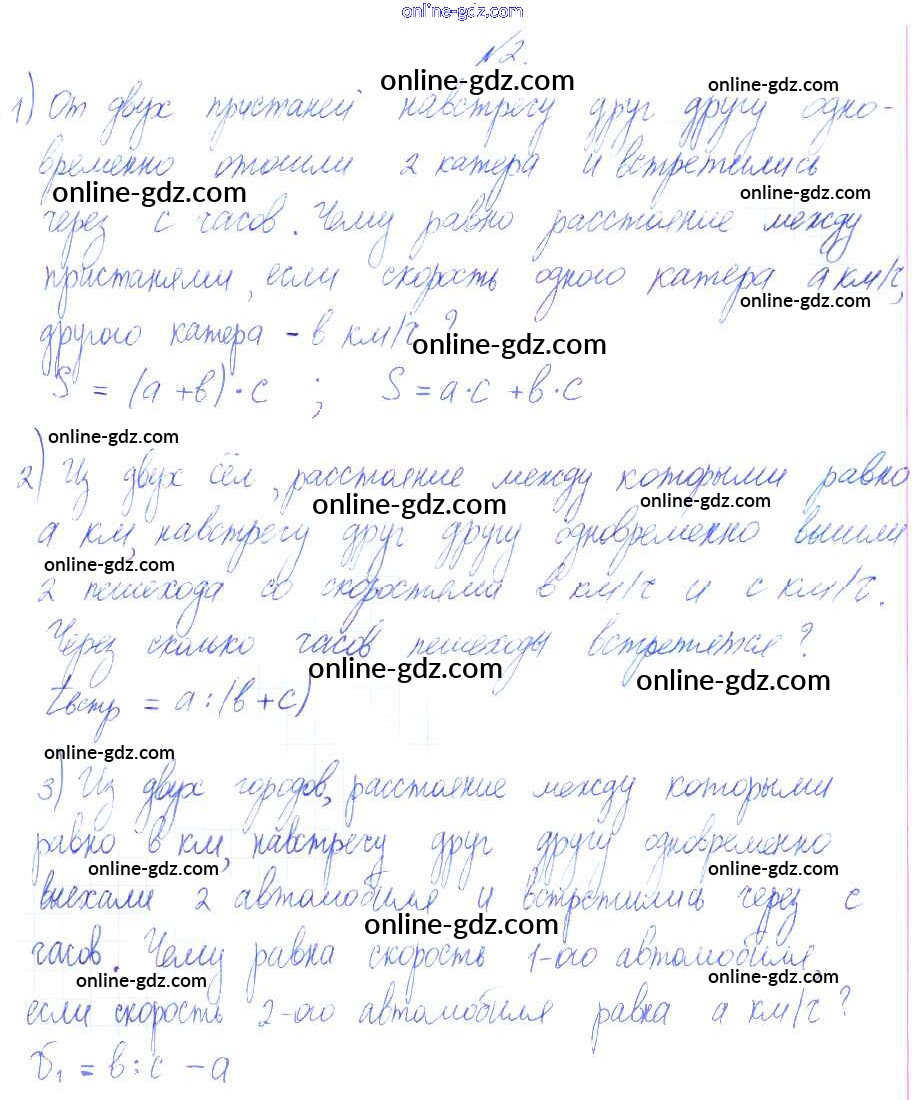 online-gdz.com
№2.
online-gdz.com
online-gdz.com
1) От двух пристаней навстречу друг другу одно-
временно отошли 2 катера и встретились
online-gdz.com
online-gdz.com
через с часов. Чему равно расстояние между
пристанями, если скорость одного катера а км/ч,
online-gdz.com
другого катера - в км/ч?
online-gdz.com
S = (а + в) · с ; S = а · с + в · с
online-gdz.com
2) Из двух сёл, расстояние между которыми равно
online-gdz.com
online-gdz.com
а км, навстречу друг другу одновременно вышли
online-gdz.com
2 пешехода со скоростями в км/ч и с км/ч.
Через сколько часов пешеходы встретятся?
online-gdz.com
online-gdz.com
tвстр = а : (в + с)
online-gdz.com
3) Из двух городов, расстояние между которыми
равно в км, навстречу друг другу одновременно
online-gdz.com
online-gdz.com
выехали 2 автомобиля и встретились через с
online-gdz.com
часов. Чему равна скорость 1-ого автомобиля,
online-gdz.com
online-gdz.com
если скорость 2-ого автомобиля равна а км/ч?
v₁ = в : с - а